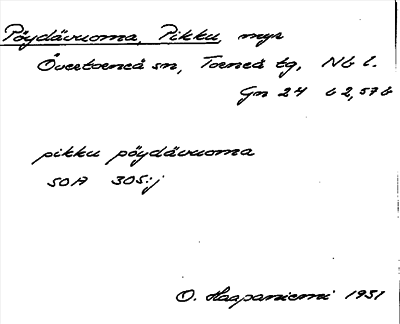 Pöydävuoma, Pikku, myr
Övertorneå sn, Torneå tg, Nb l.
Gn 24 b 2,57 b
pikku pöydävuoma
SOA 305:j
O. Haapaniemi 1931